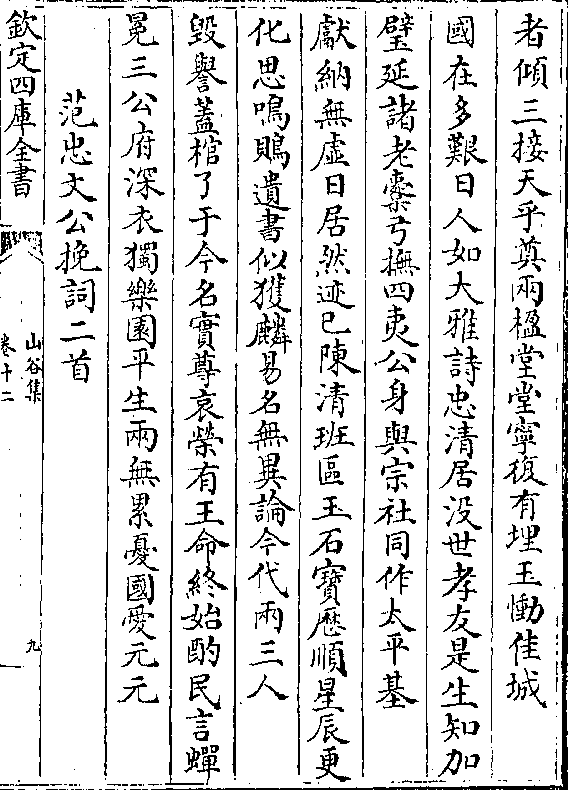 者傾三接天乎奠兩楹堂堂寧復有埋玉慟佳城
國在多艱日人如大雅詩忠清居没世孝友是生知加
璧延諸老櫜弓撫四夷公身與宗社同作太平基
獻納無虚日居然迹已陳清班區玉石寶厯順星辰更
化思鳴鵙遺書似獲麟易名無異論今代兩三人
毀譽蓋棺了于今名實尊哀榮有王命終始酌民言蟬
冕三公府深衣獨樂園平生兩無累憂國愛元元
范忠文公挽詞二首
欽定四庫全書
山谷集
卷十二
九